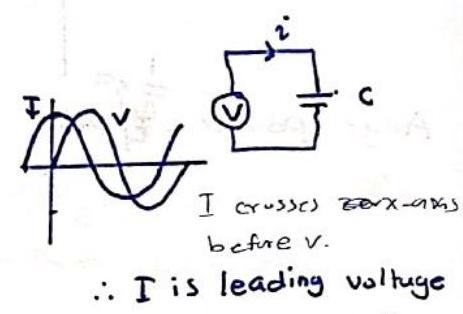 i
I
V
V
C
I crosses x-axis
before v.
∴ I is leading voltage